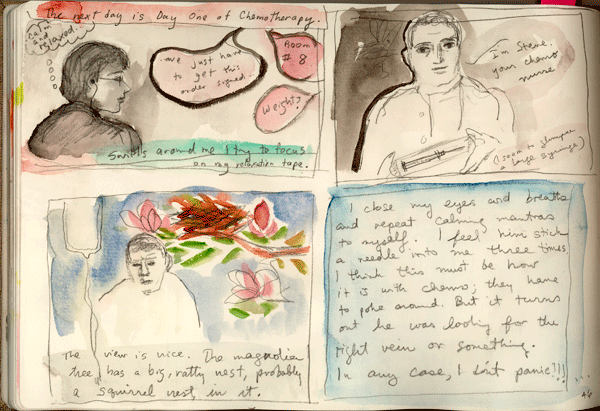 The next day is Day One of Chemotherapy.
Calm
and
relaxed.
We just have
to get this
order signed.
Room
# 8
Weight?
around me I try to focus
on my relaxation tape.
I'm Steve,
your chemo
nurse
(I seem to glimpse
a large syringe)
The view is nice. The magnolia
tree has a big, ratty nest, probably
a squirrel nest, in it.
I close my eyes and breathe
and repeat calming mantras
to myself. I feel him stick
a needle into me three times
I think this must be how
it is with chemo; they have
to poke around. But it turns
out he was looking for the
right vein or something.
In any case, I don't panic!!!
46